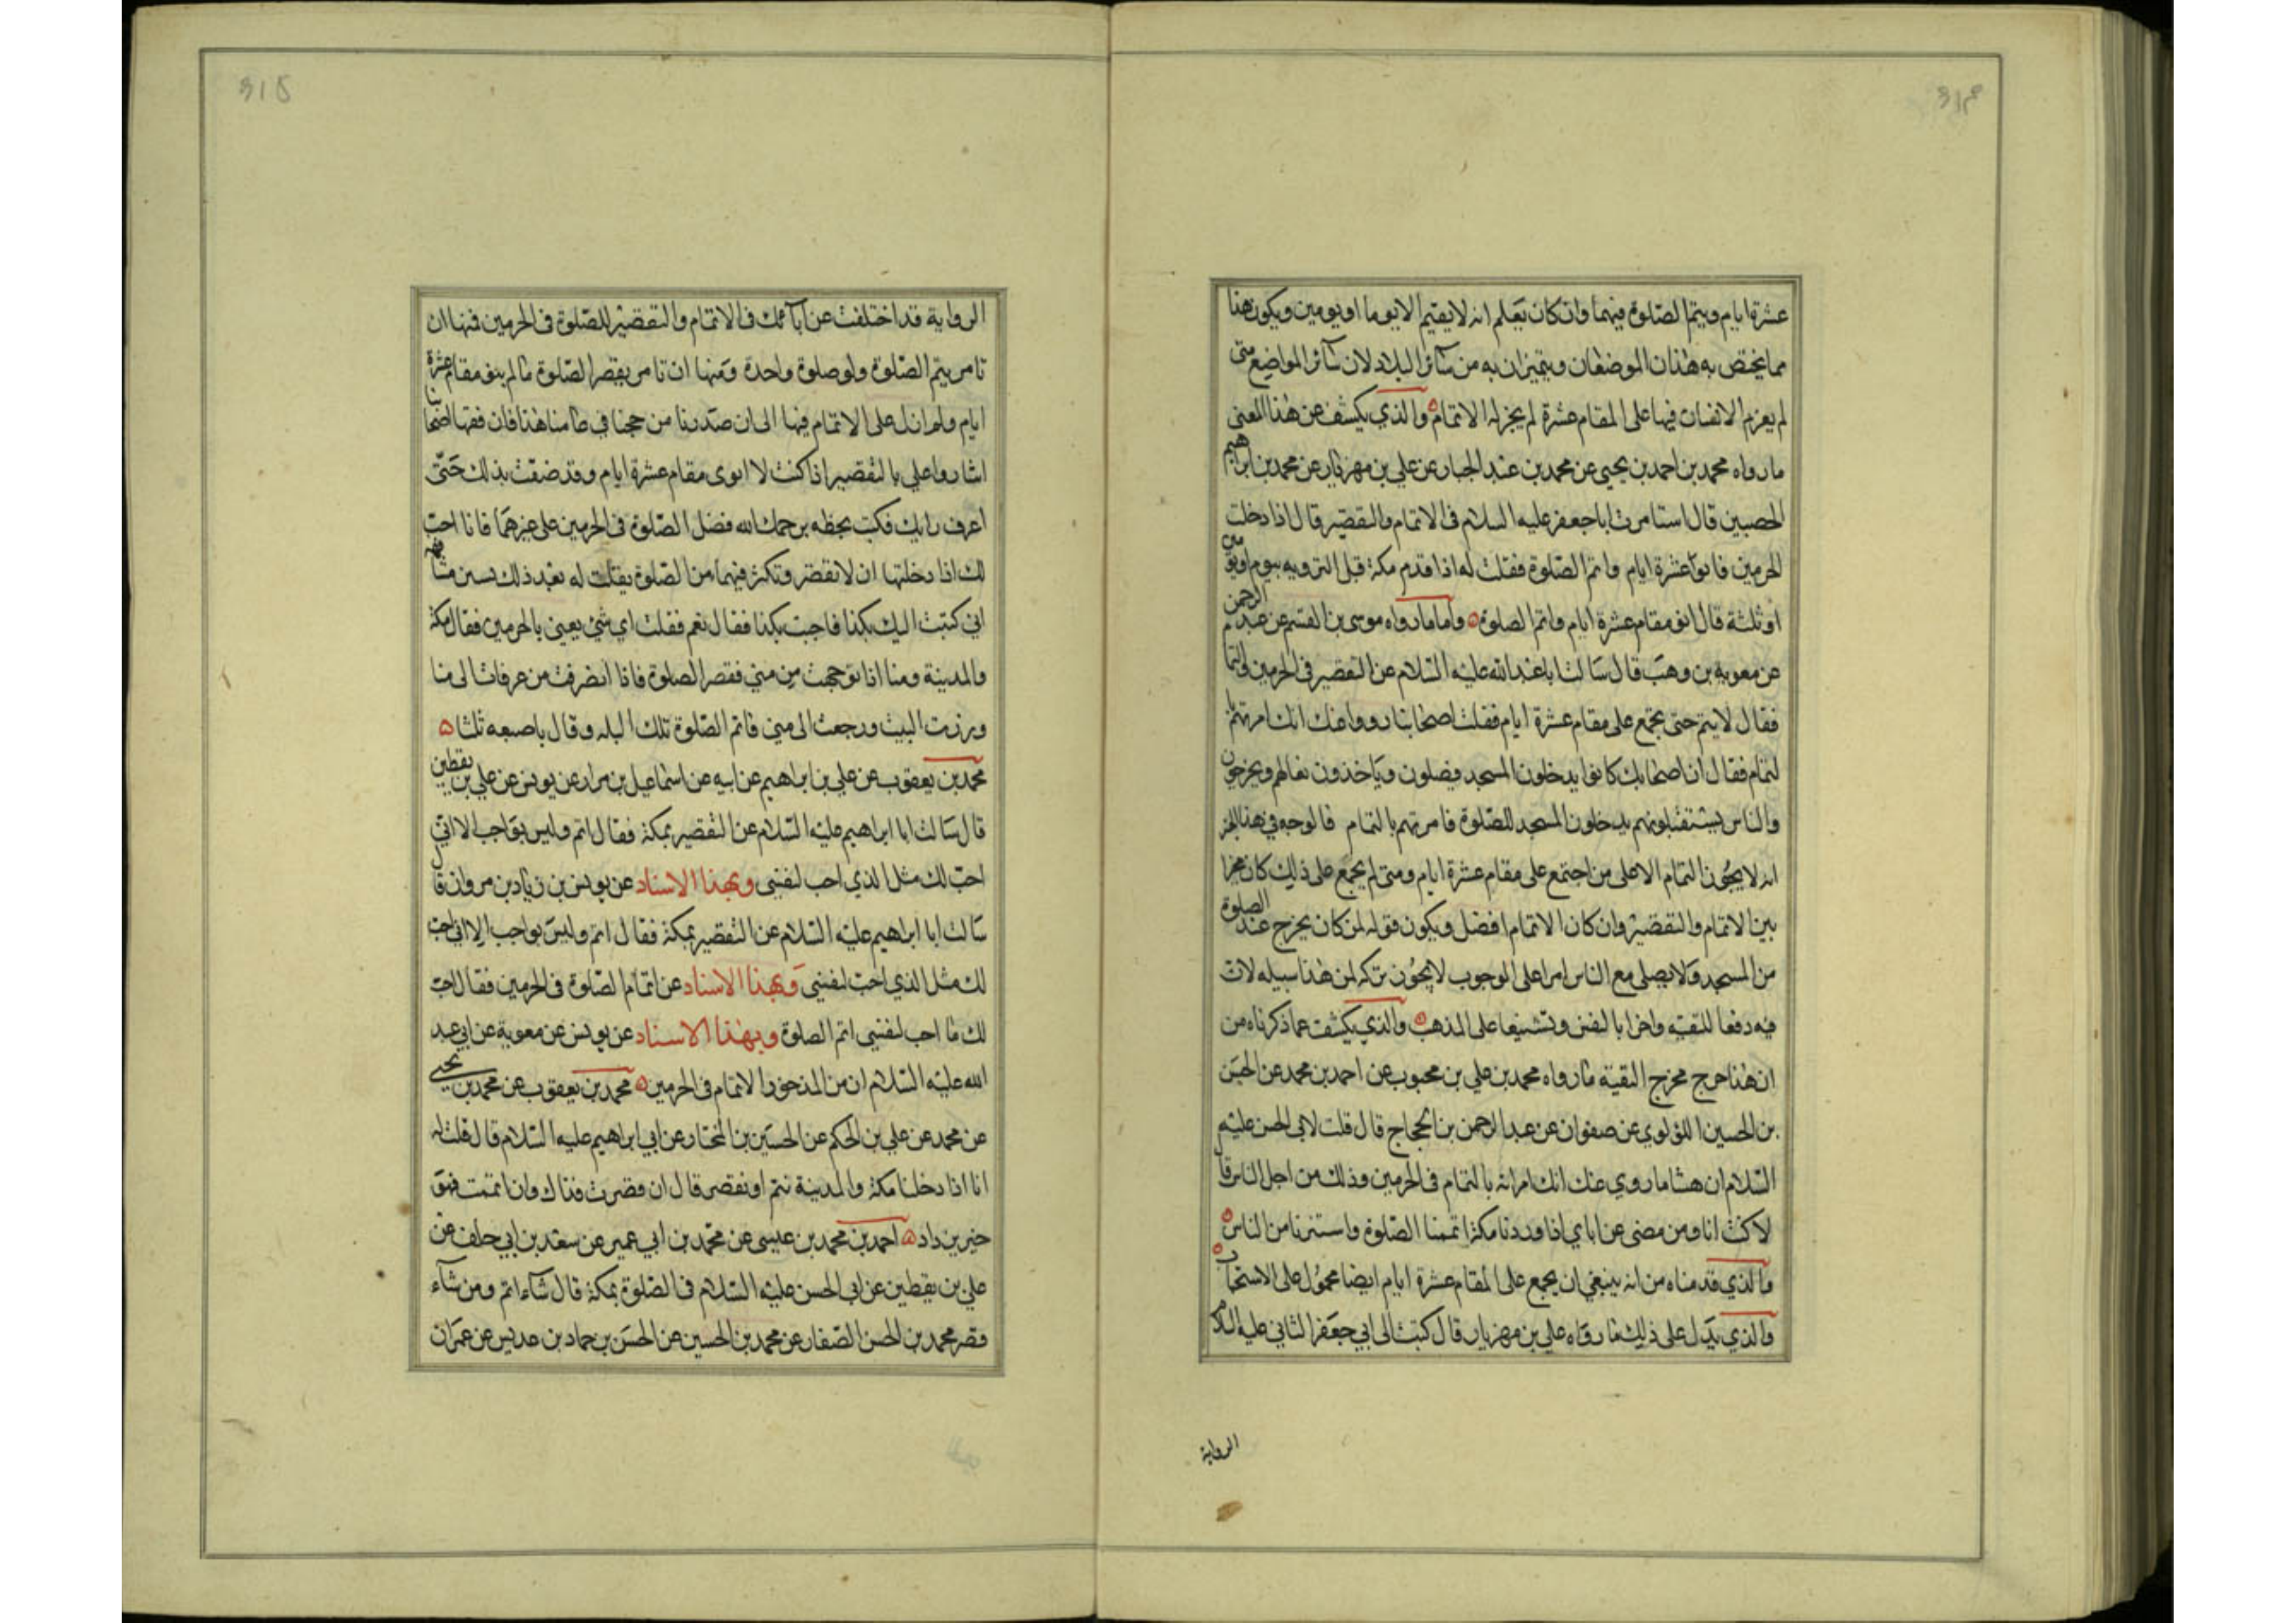 عشرة ايام ويتم الصلوة فيهما وان كان يعلم انه لا يقيم الا يوما او يومين ويكون هذا
مما يختص به هذان الموضعان ويتميزان به من سائر البلاد لان سائر المواضع متى
لم يعزم الانسان فيها على المقام عشرة لم يجز له الاتمام والذي يكشف عن هذا المعنى
ما رواه محمد بن احمد بن يحيى عن محمد بن عبد الجبار عن علي بن مهزيار عن محمد بن ابراهيم
الحصيني قال استامرت ابا جعفر عليه السلام في الاتمام والتقصير قال اذا دخلت
الحرمين فانو عشرة ايام واتم الصلوة فقلت له اذا قدم مكة قبل الترويه بيوم او يومين
او ثلثة قال انو مقام عشرة ايام واتم الصلوة واما ما رواه موسى بن القسم عن عبد الرحمن
عن معوية بن وهب قال سالت ابا عبد الله عليه السلام عن التقصير في الحرمين والتمام
فقال لا يتم حتى يجمع على مقام عشرة ايام فقلت اصحابنا رووا عنك انك امرتهم
لتمام فقال ان اصحابك كانوا يدخلون المسجد فيصلون وياخذون نعالهم ويخرجون
والناس يستقبلونهم يدخلون المسجد للصلوة فامرتهم بالتمام فالوجه في هذا الخبر
انه لا يجوز التمام الا على من اجتمع على مقام عشرة ايام ومتى لم يجمع على ذلك كان مخيرا
بين الاتمام والتقصير وان كان الاتمام افضل ويكون قوله لمن كان يخرج عند الصلوة
من المسجد ولا يصلي مع الناس امرا على الوجوب لا يجوز تركه لمن هذا سبيله لان
فيه دفعا للتقيه واغرا بالنفس وتشنيعا على المذهب والذي يكشف عما ذكرناه من
ان هذا خرج مخرج التقية ما رواه محمد بن علي بن محبوب عن احمد بن محمد عن الحسن
بن الحسين اللؤلوي عن صفوان عن عبد الرحمن بن الحجاج قال قلت لابي الحسن عليه
السلام ان هشاما روي عنك انك امرته بالتمام في الحرمين وذلك من اجل الناس قال
لا كنت انا ومن مضى من اباي اذا وردنا مكة اتممنا الصلوة واستترنا من الناس
والذي قدمناه من انه ينبغي ان يجمع على المقام عشرة ايام ايضا محمول على الاستحباب
والذي يدل على ذلك ما رواه علي بن مهزيار قال كتبت الى ابي جعفر الثاني عليه السلام
الرواية
الرواية قد اختلفت عن آبائك في الاتمام والتقصير للصلوة في الحرمين فمنها ان
تامر بتم الصلوة ولو صلوة واحدة ومنها ان تامر بقصر الصلوة ما لم ينو مقام عشرة
ايام ولم ازل على الاتمام فيها الى ان صدرنا من حجنا في عامنا هذا فان فقهاء اصحابنا
اشاروا علي بالتقصير اذا كنت لا انوى مقام عشرة ايام وقد ضقت بذلك حتى
اعرف رايك فكتب بخطه يرحمك الله فضل الصلوة في الحرمين على غيرهما فانا احب
لك اذا دخلتها ان لا تقصر وتكثر فيهما من الصلوة فقلت له بعد ذلك بسنين مشافهة
اني كتبت اليك بكذا فاجبت بكذا فقال نعم فقلت اي شئ يعني بالحرمين فقال مكة
والمدينة ومنا اذا توجهت من منى فقصر الصلوة فاذا انصرفت من عرفات الى منا
وزرت البيت ورجعت الى منى فاتم الصلوة تلك الـ وقال باصبعه ثلثا
محمد بن يعقوب عن علي بن ابراهيم عن ابيه عن اسماعيل بن مرار عن يونس عن علي بن يقطين
قال سالت ابا ابراهيم عليه السلام عن التقصير بمكة فقال اتم وليس بواجب الا اني
احب لك مثل الذي احب لنفسي وبهذا الاسناد عن يونس بن زياد بن مروان قال
سالت ابا ابراهيم عليه السلام عن التقصير بمكة فقال اتم وليس بواجب الا اني احب
لك مثل الذي احب لنفسي وبهذا الاسناد عن اتمام الصلوة في الحرمين فقال احب
لك ما احب لنفسي اتم الصلوة وبهذا الاسناد عن يونس عن معوية عن ابي عبد
الله عليه السلام ان من المذخور الاتمام في الحرمين محمد بن يعقوب عن محمد بن يحيى
عن محمد عن علي بن الحكم عن الحسين بن المختار عن ابي ابراهيم عليه السلام قال قلت له
انا اذا دخلنا مكة والمدينة نتم او نقصر قال ان قصرت فذاك وان اتممت فهو
خير يزداد احمد بن محمد بن عيسى عن محمد بن ابي عمير عن سعد بن ابي خلف عن
علي بن يقطين عن ابي الحسن عليه السلام في الصلوة بمكة قال من شآء اتم ومن شآء
قصر محمد بن الحسن الصفار عن محمد بن الحسين عن الحسن بن حماد بن عديس عن عمران